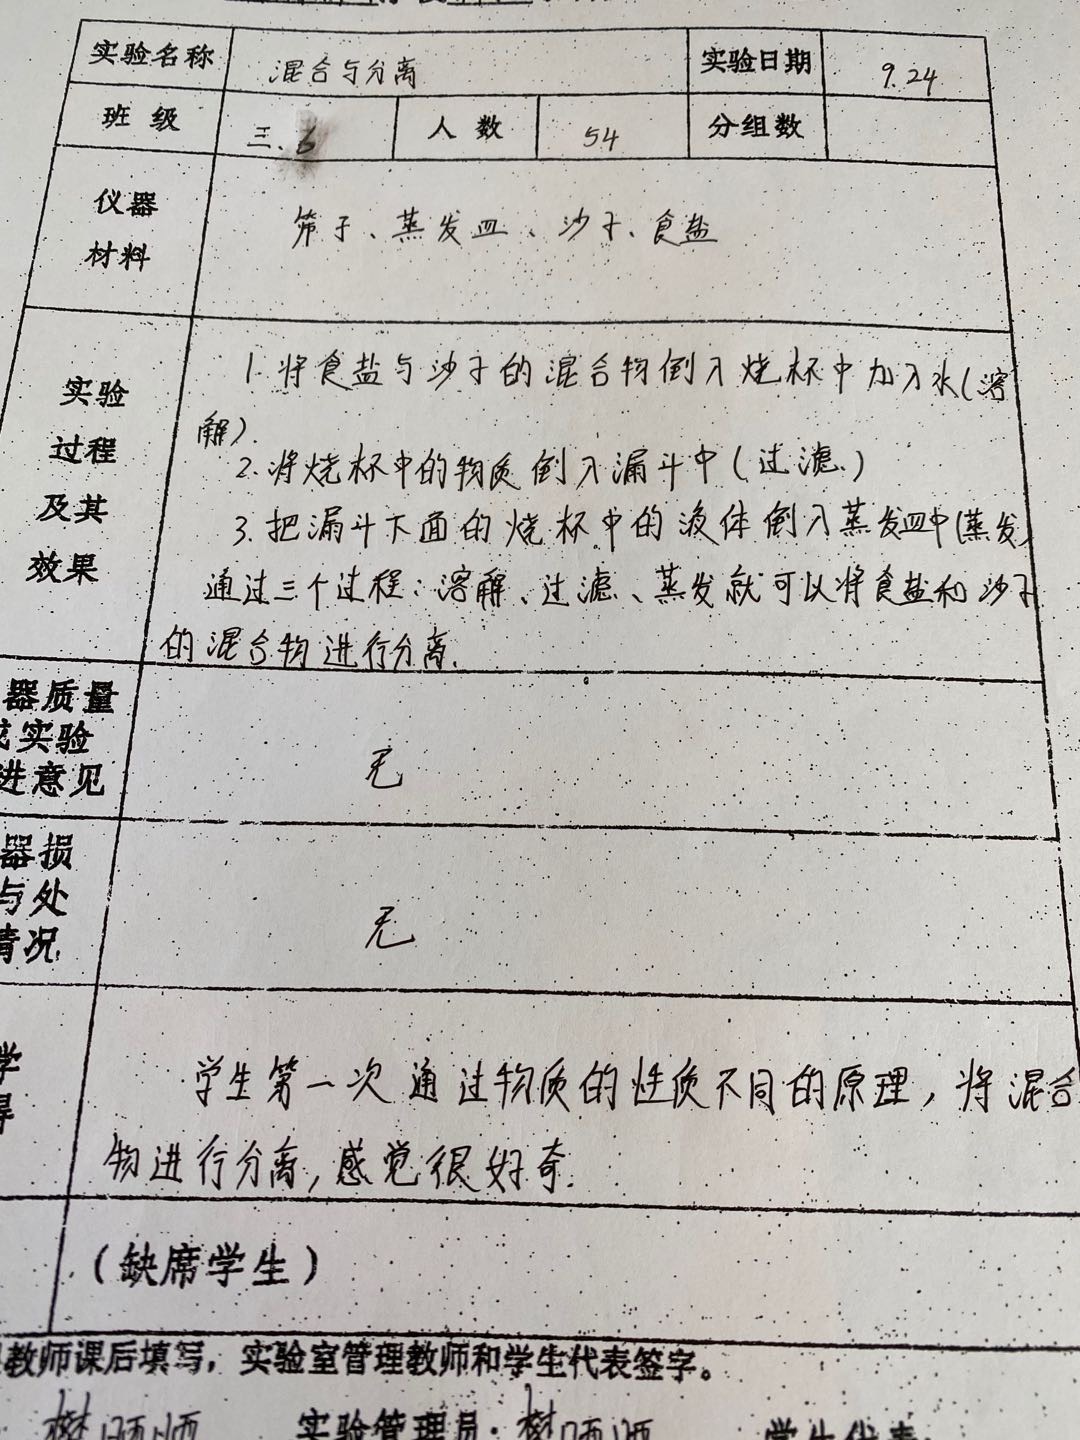 实验名称 混合与分离 实验日期 9.24
班 级 三.6 人 数 54 分组数
仪器
材料
筛子、蒸发皿、沙子、食盐
实验
过程
及其
效果
1. 将食盐与沙子的混合物倒入烧杯中加入水(溶
解).
2. 将烧杯中的物质倒入漏斗中(过滤.)
3. 把漏斗下面的烧杯中的液体倒入蒸发皿中(蒸发)
通过三个过程:溶解、过滤、蒸发就可以将食盐和沙子
的混合物进行分离.
器质量
实验
进意见
无
器损
与处
情况
无
学
得
学生第一次通过物质的性质不同的原理,将混合
物进行分离,感觉很好奇.
(缺席学生)
教师课后填写,实验室管理教师和学生代表签字。
实验管理员: 学生代表: